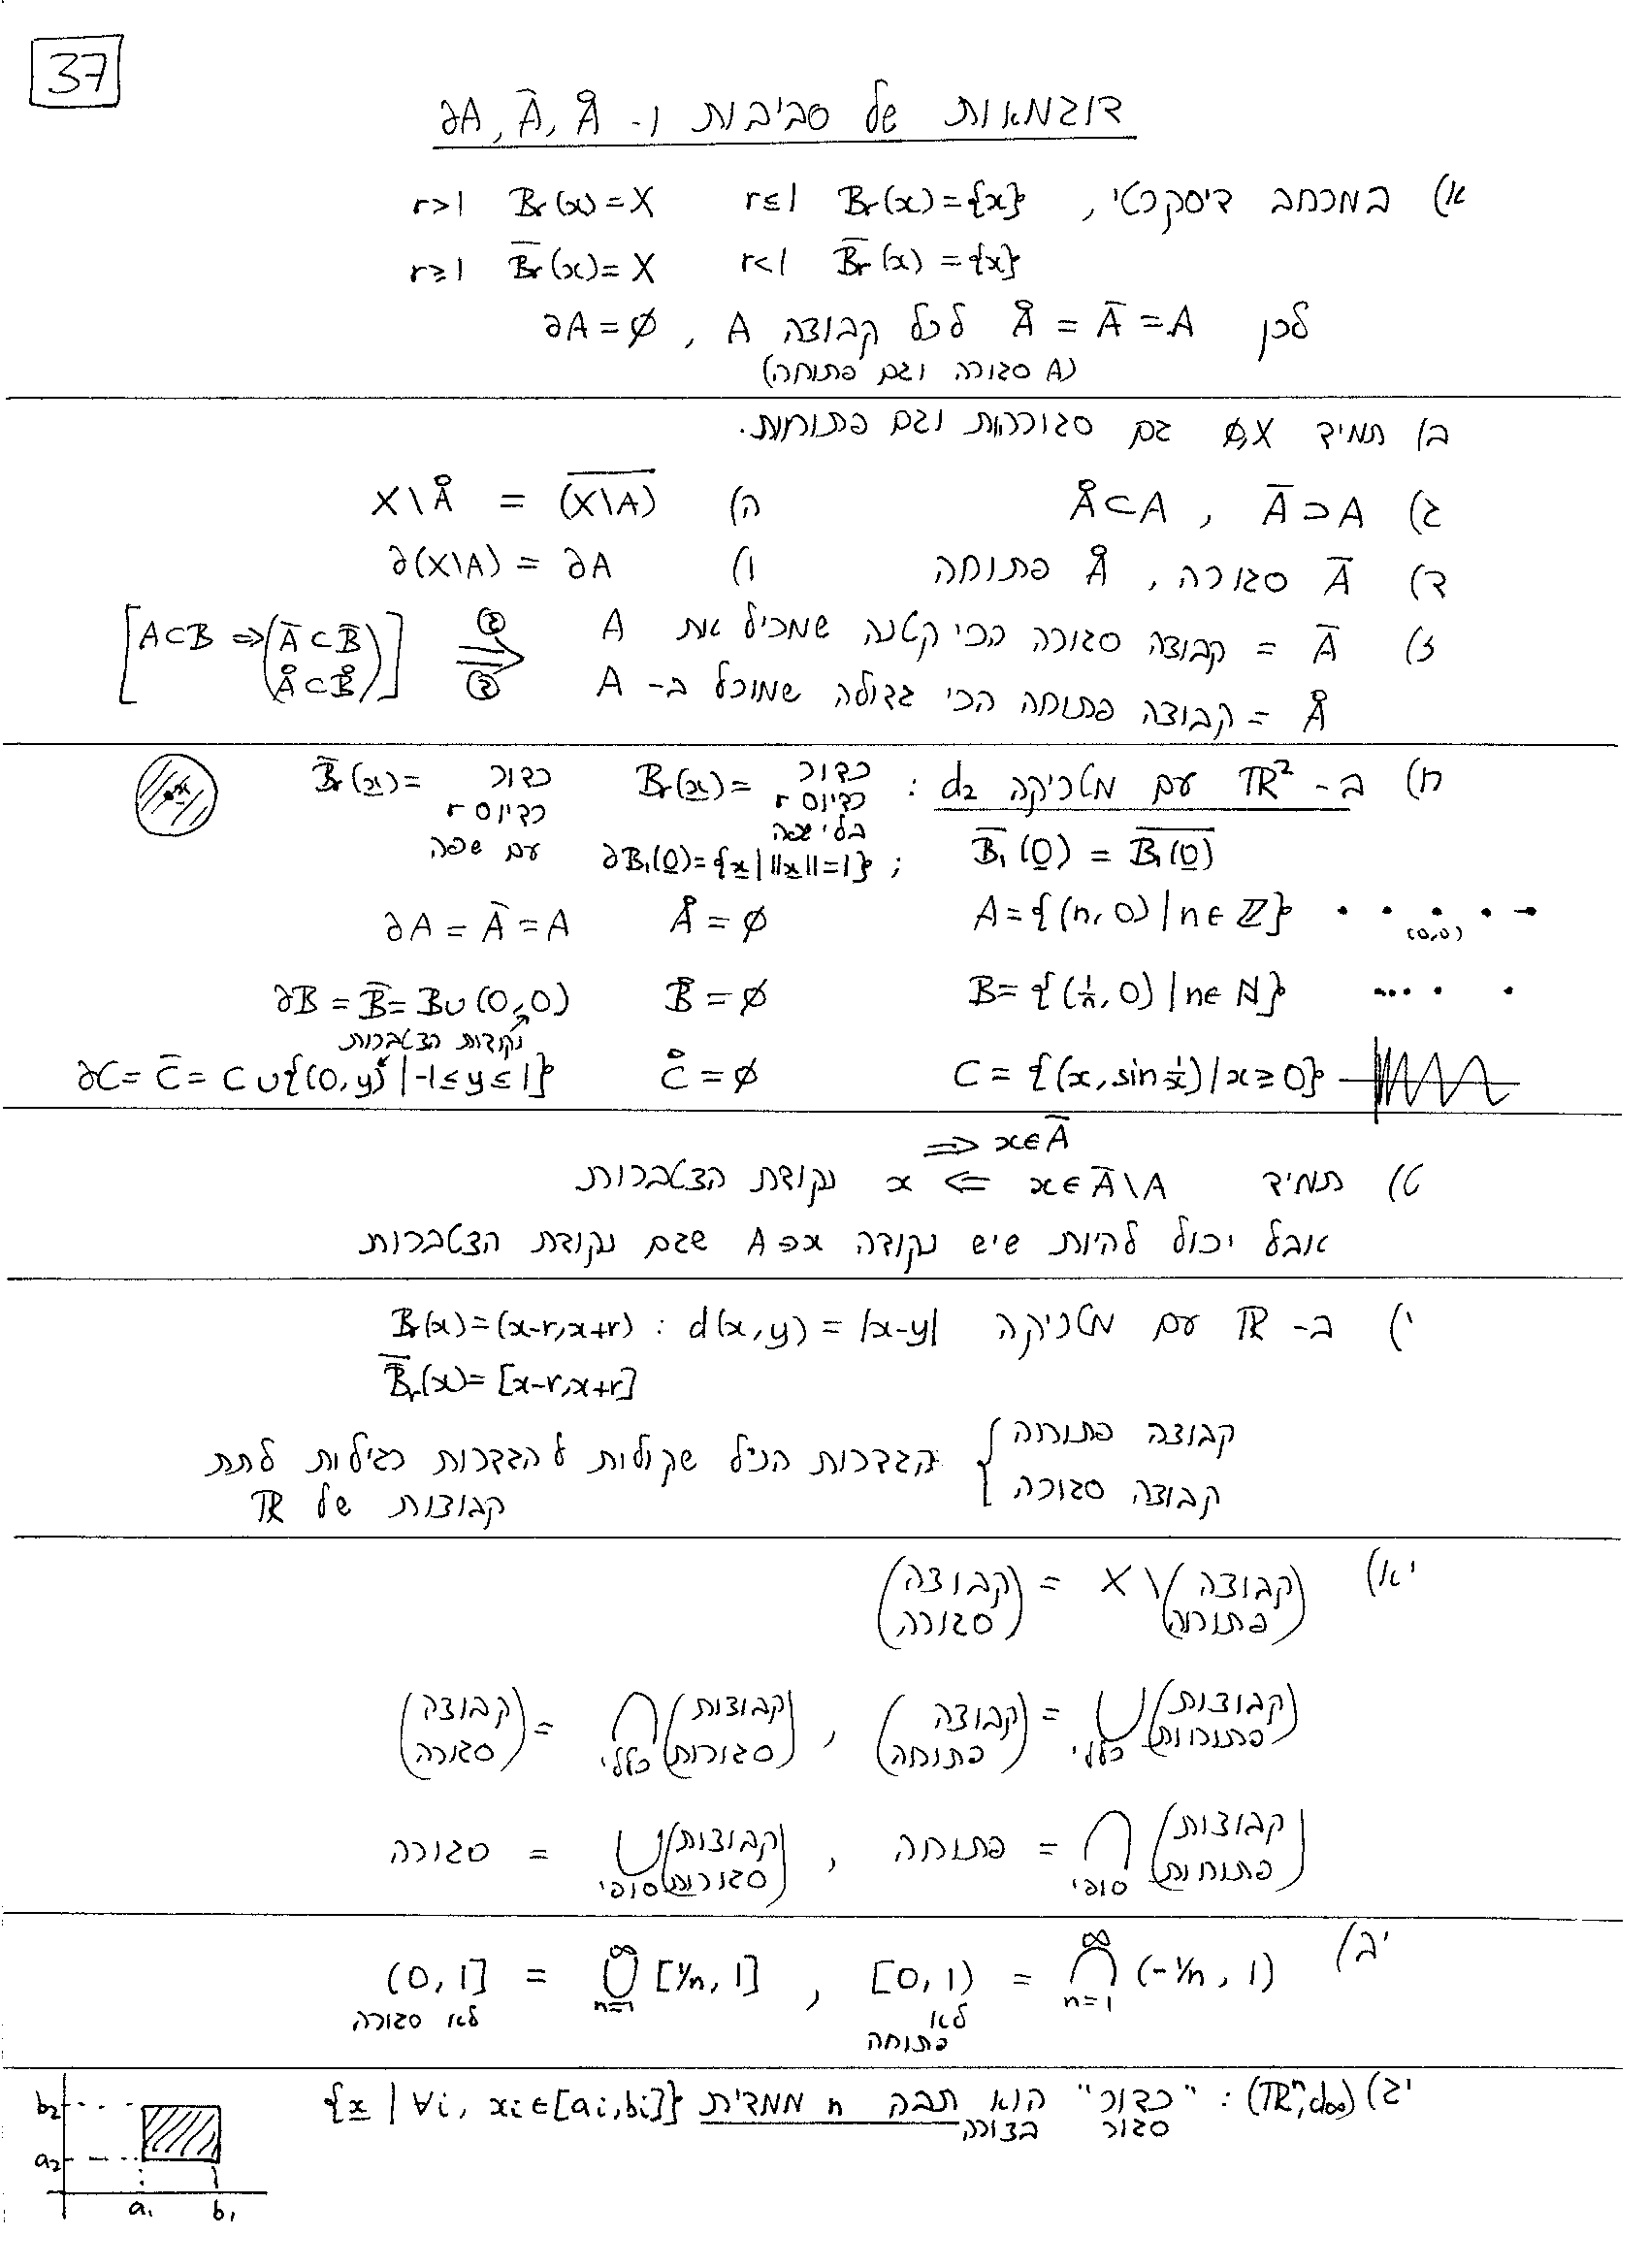 37
דוגמאות של סביבות ו- ∂A, Ā, Å
א) במכחב דיסקרטי, Br(x)={x} r≤1 Br(x)=X r>1
B̄r(x)={x} r<1 B̄r(x)=X r≥1
לכן Å = Ā = A לכל קבוצה A, ∂A = ∅
(A סגורה וגם פתוחה)
ב) תמיד X,∅ גם סגורות וגם פתוחות.
ג) Ā⊃A , Å⊂A
ה) X\Å = \overline{(X\A)}
ד) Ā סגורה, Å פתוחה
ו) ∂(X\A) = ∂A
ז) Ā = קבוצה סגורה הכי קטנה שמכיל את A
Å = קבוצה פתוחה הכי גדולה שמוכל ב- A
② ⟹ ② [A⊂B ⇒ (Ā⊂B̄ Å⊂B̊)]
ח) ב- ℝ² עם מטריקה d₂ : Br(x)= כדור רדיוס r בלי שפה B̄r(x)= כדור רדיוס r עם שפה
x
B̄₁(0) = \overline{B₁(0)} ; ∂B₁(0)={x | ||x||=1}
A={(n,0) | n∈ℤ} (0,0) Å=∅ ∂A = Ā = A
B={(1/n,0) | n∈ℕ} B̊=∅ ∂B = B̄ = B∪(0,0)
נקודות הצטברות
C={(x, sin 1/x) | x≥0} C̊=∅ ∂C = C̄ = C∪{(0,y) | -1≤y≤1}
⇒ x∈Ā
ט) תמיד x∈Ā\A ⇐ x נקודת הצטברות
אבל יכול להיות שיש נקודה x∈A שגם נקודת הצטברות
י) ב- ℝ עם מטריקה d(x,y)=|x-y| : Br(x)=(x-r,x+r)
B̄r(x)=[x-r,x+r]
קבוצה פתוחה
קבוצה סגורה } הגדרות הנ״ל שקולות להגדרות רגילות לתת
קבוצות של ℝ
יא) (קבוצה פתוחה) X \ = (קבוצה סגורה)
(קבוצות פתוחות) ⋃ כללי = (קבוצה פתוחה) , (קבוצות סגורות) ⋂ כללי = (קבוצה סגורה)
(קבוצות פתוחות) ⋂ סופי = פתוחה , (קבוצות סגורות) ⋃ סופי = סגורה
יב) [0,1) = ⋂_{n=1}^{∞} (-1/n, 1) , (0,1] = ⋃_{n=1}^{∞} [1/n, 1]
לא פתוחה לא סגורה
יג) (ℝⁿ,d∞) : "כדור" סגור הוא בצורה תבה n ממדית {x | ∀i, xi∈[ai,bi]}
b₂
a₂
a₁ b₁